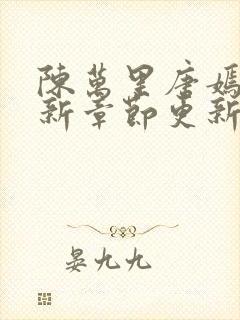 陳萬里唐嫣
新章節更新
晏九九